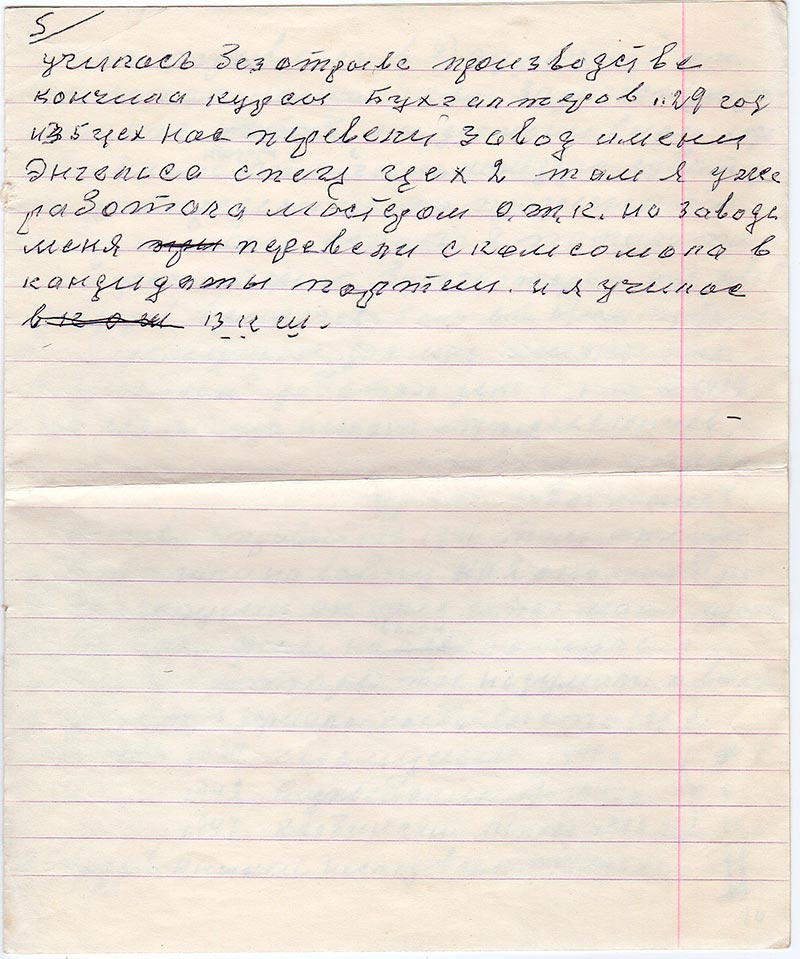 5/
училась Безотрыва производства
кончила курсы Бухгалтеров 29 год
из 5 цех нас перевели завод имени
Энгельса спец цех 2 там я уже
работала мастером о.т.к. на заводе
меня перевели с камсомола в
кандидаты партии. и я училас
в к ш.